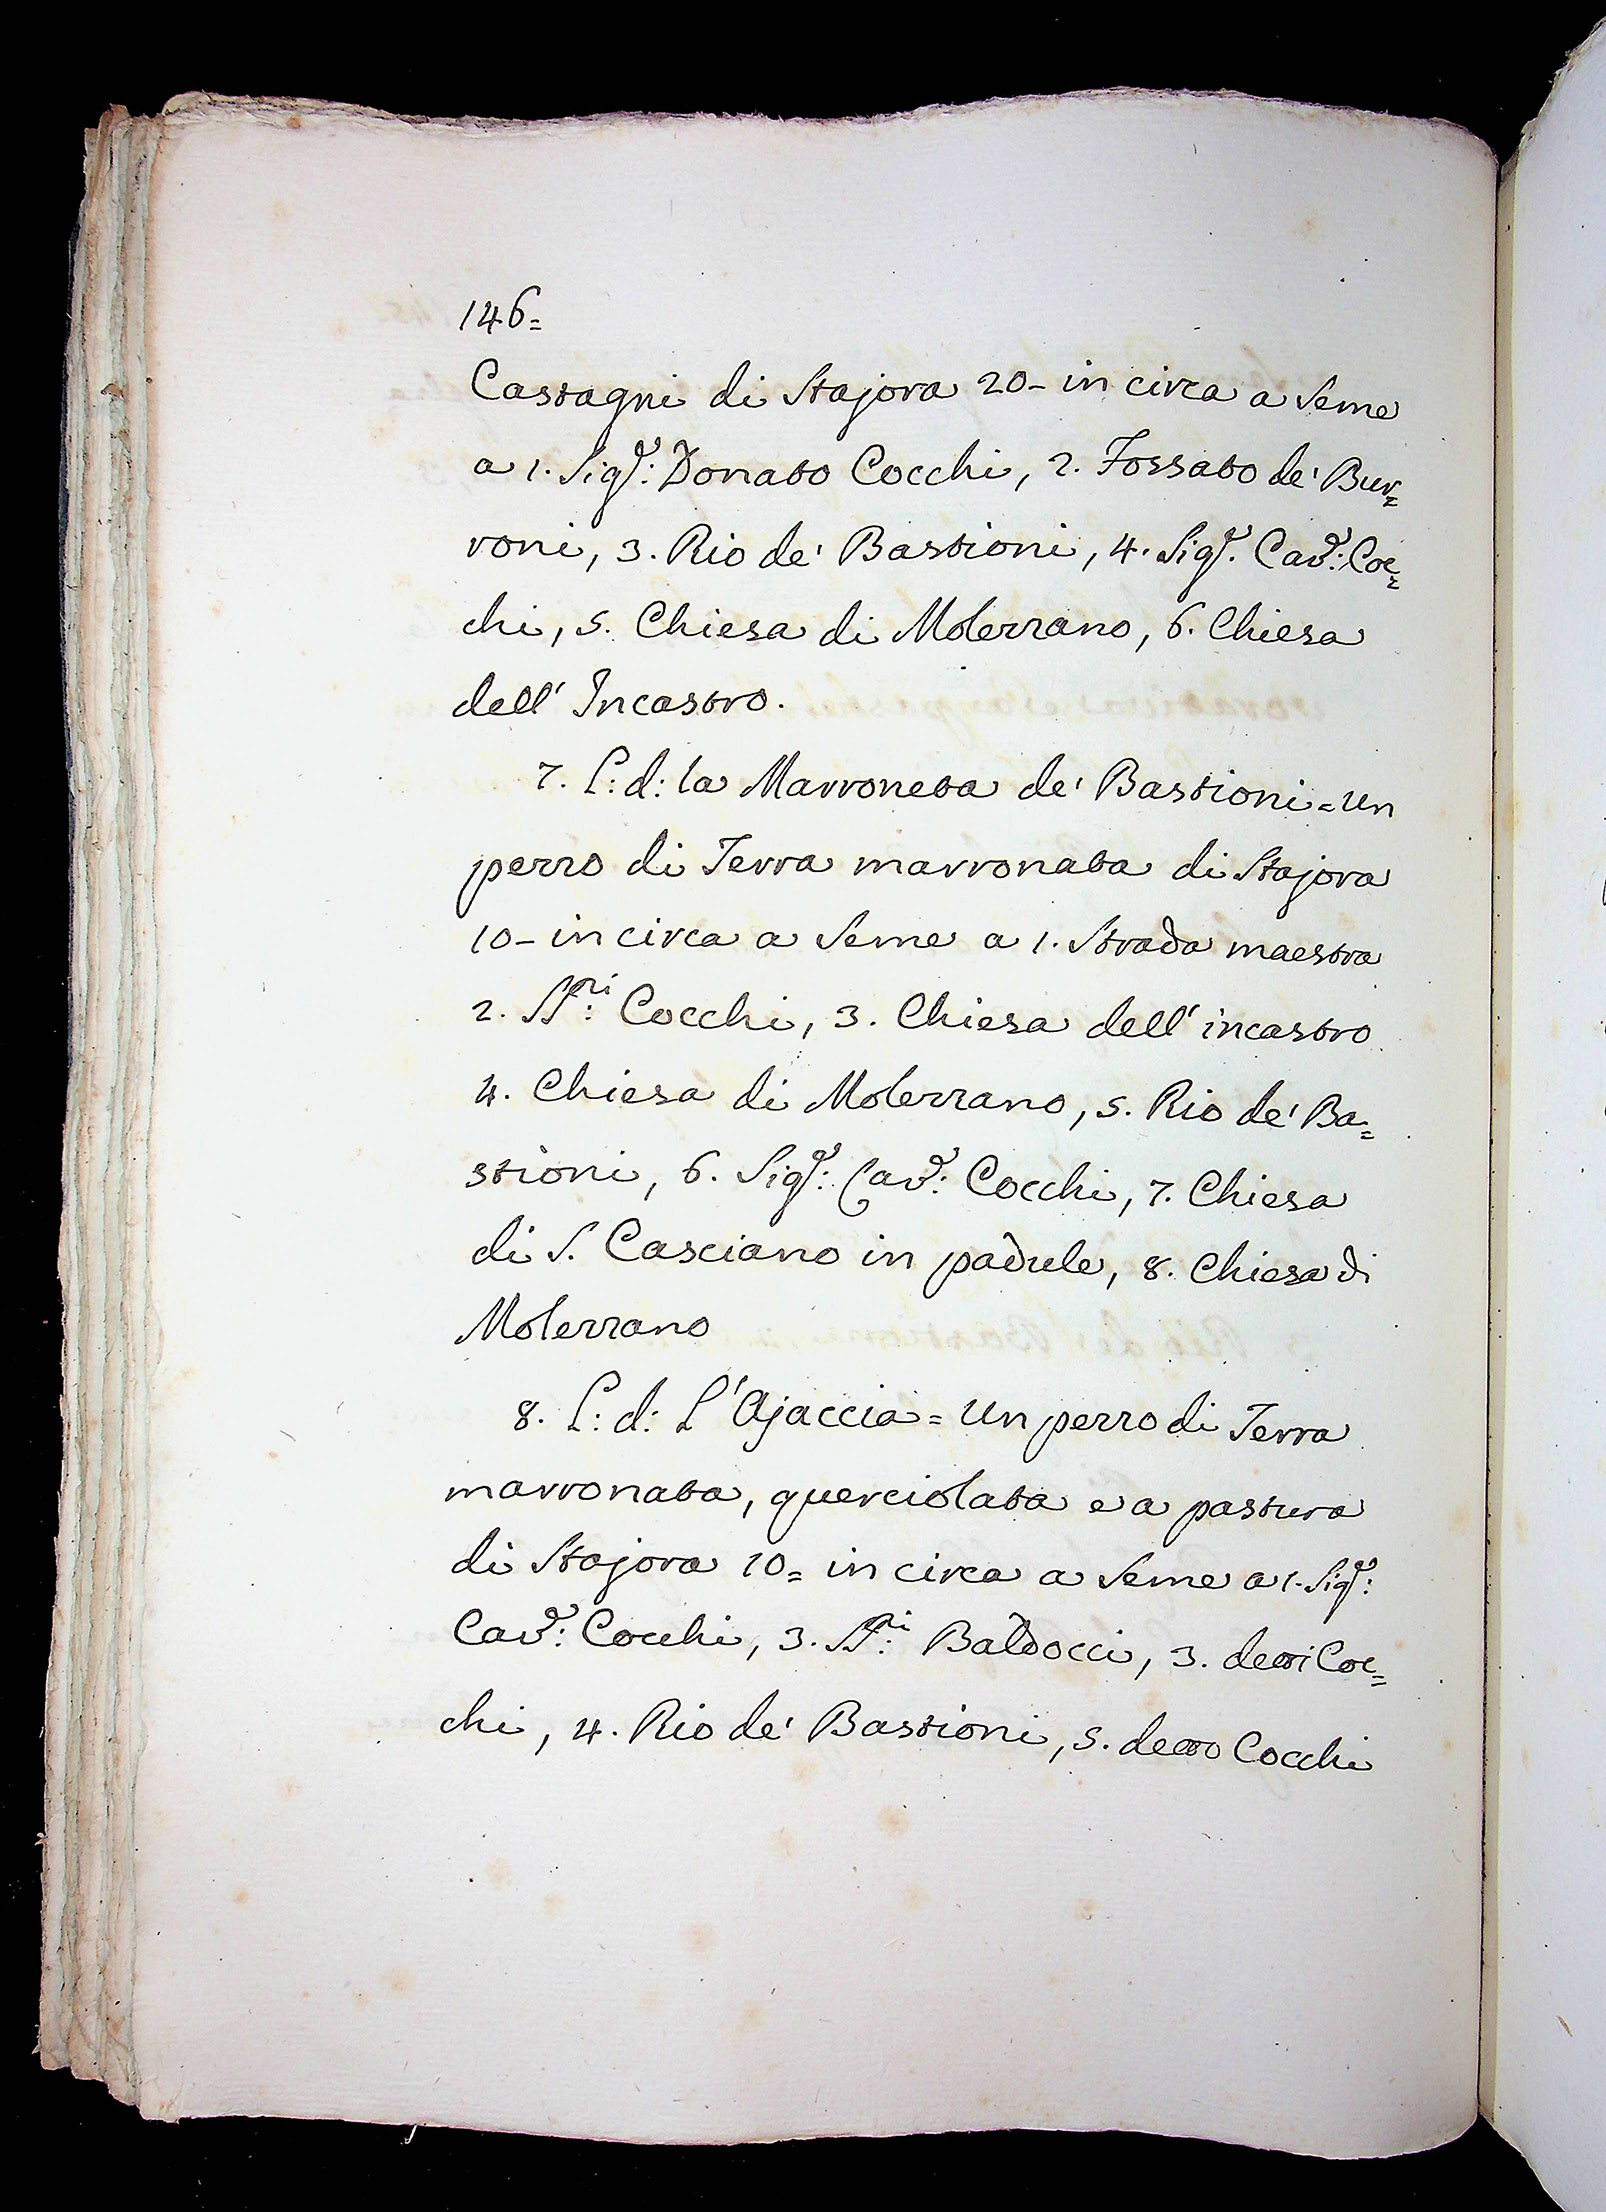 146=
Castagni di Stajora 20- in circa a Seme
a 1. Sigr: Donato Cocchi, 2. Fossato de' Bur=
roni, 3. Rio de' Bastioni, 4. Sigr. Cavr: Coc=
chi, 5. Chiesa di Molezzano, 6. Chiesa
dell' Incastro.
7. L: d: la Marroneta de' Bastioni = un
pezzo di Terra marronata di Stajora
10- in circa a Seme a 1. Strada maestra
2. SSri: Cocchi, 3. Chiesa dell' incastro
4. Chiesa di Molezzano, 5. Rio de' Ba=
stioni, 6. Sigr: Cavr: Cocchi, 7. Chiesa
di S. Casciano in padule, 8. Chiesa di
Molezzano
8. L: d: L' Ajaccia = un pezzo di Terra
marronata, querciolata e a pastura
di Stajora 10= in circa a Seme a 1. Sigr:
Cavr: Cocchi, 3. SSri: Baldocci, 3. detti Coc=
chi, 4. Rio de' Bastioni, 5. detto Cocchi